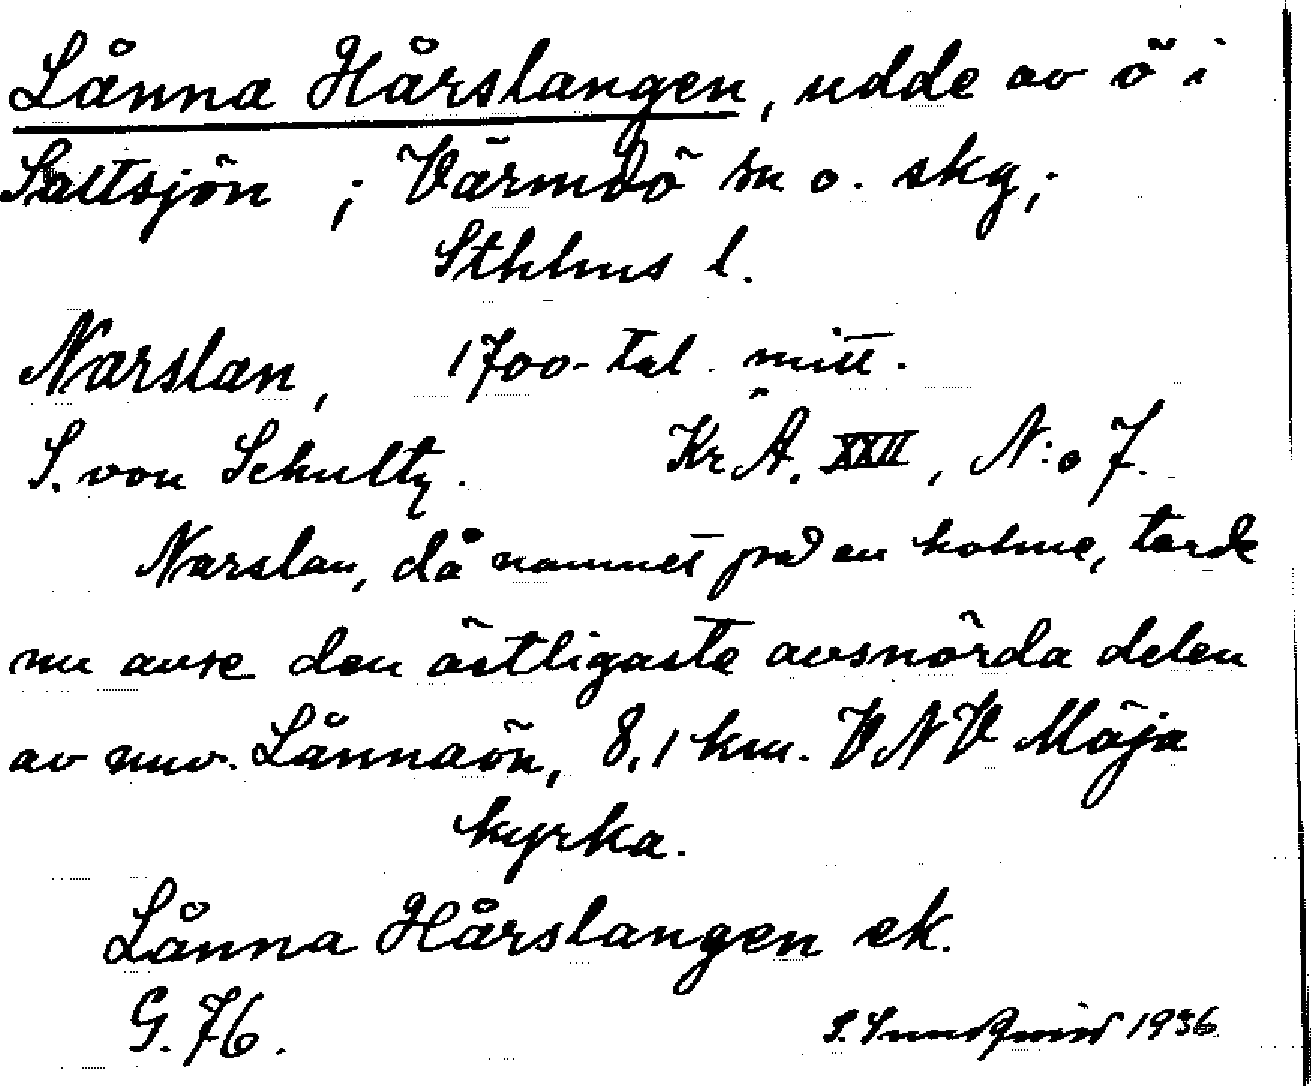 Lånna Hårslangen, udde av ö i
Saltsjön ; Värmdö sn o. skg;
Sthlms l.
Narslan, 1700-tal mitt.
S. von Schultz. Kr A. XXII, N:o 7.
Narslan, då namnet på en holme, torde
nu avse den östligaste avsnörda delen
av nuv. Lånnaön, 8,1 km. VNV Möja
kyrka.
Lånna Hårslangen ek.
G. 76.
S. 1936